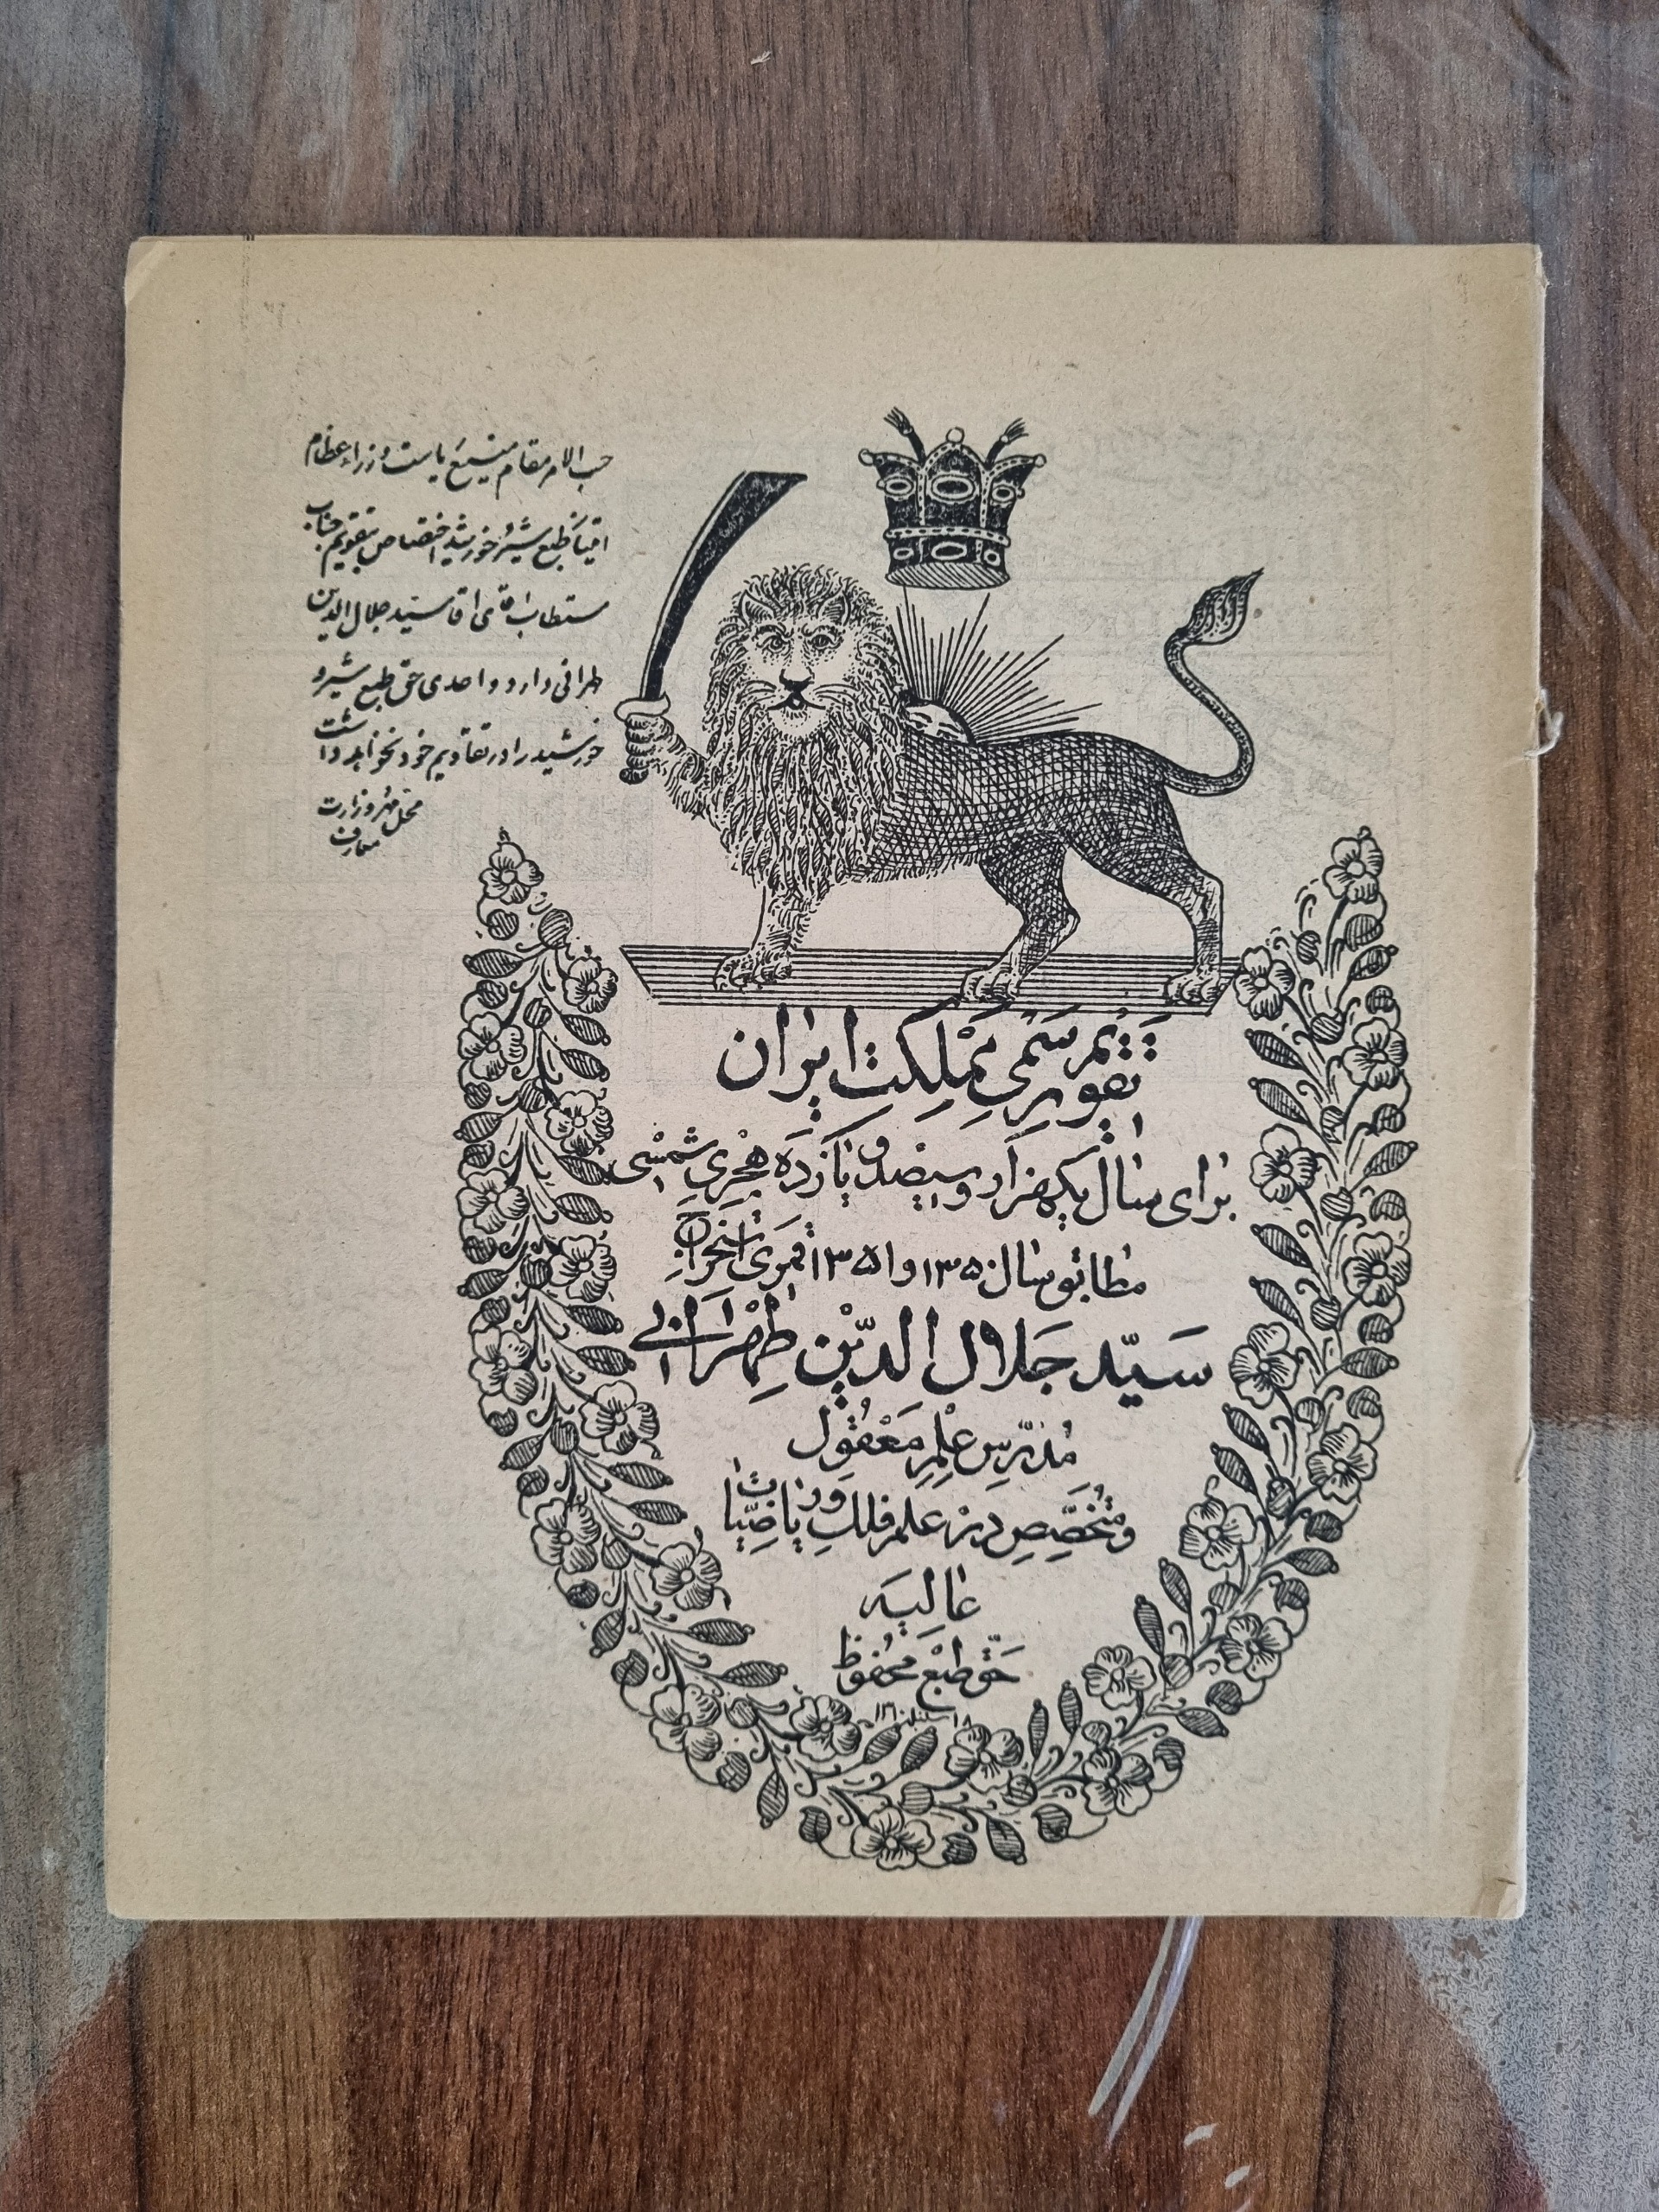 حسب الامر مقام منیع ریاست وزراء عظام
طبع شیر و خورشید اختصاص بتقویم جناب
مستطاب آقای آقا سید جلال الدین
طهرانی دارد و احدی حق طبع شیر و
خورشید را در تقاویم خود نخواهد داشت
محل مهر وزارت
معارف
تقویم رسمی مملکت ایران
برای سال یکهزار و سیصد و یازده هجری شمسی
مطابق سال ۱۳۵۰ و ۱۳۵۱ قمری استخراج
سید جلال الدین طهرانی
مدرس علم معقول
و متخصص در علم فلک و ریاضیات
عالیه
حق طبع محفوظ